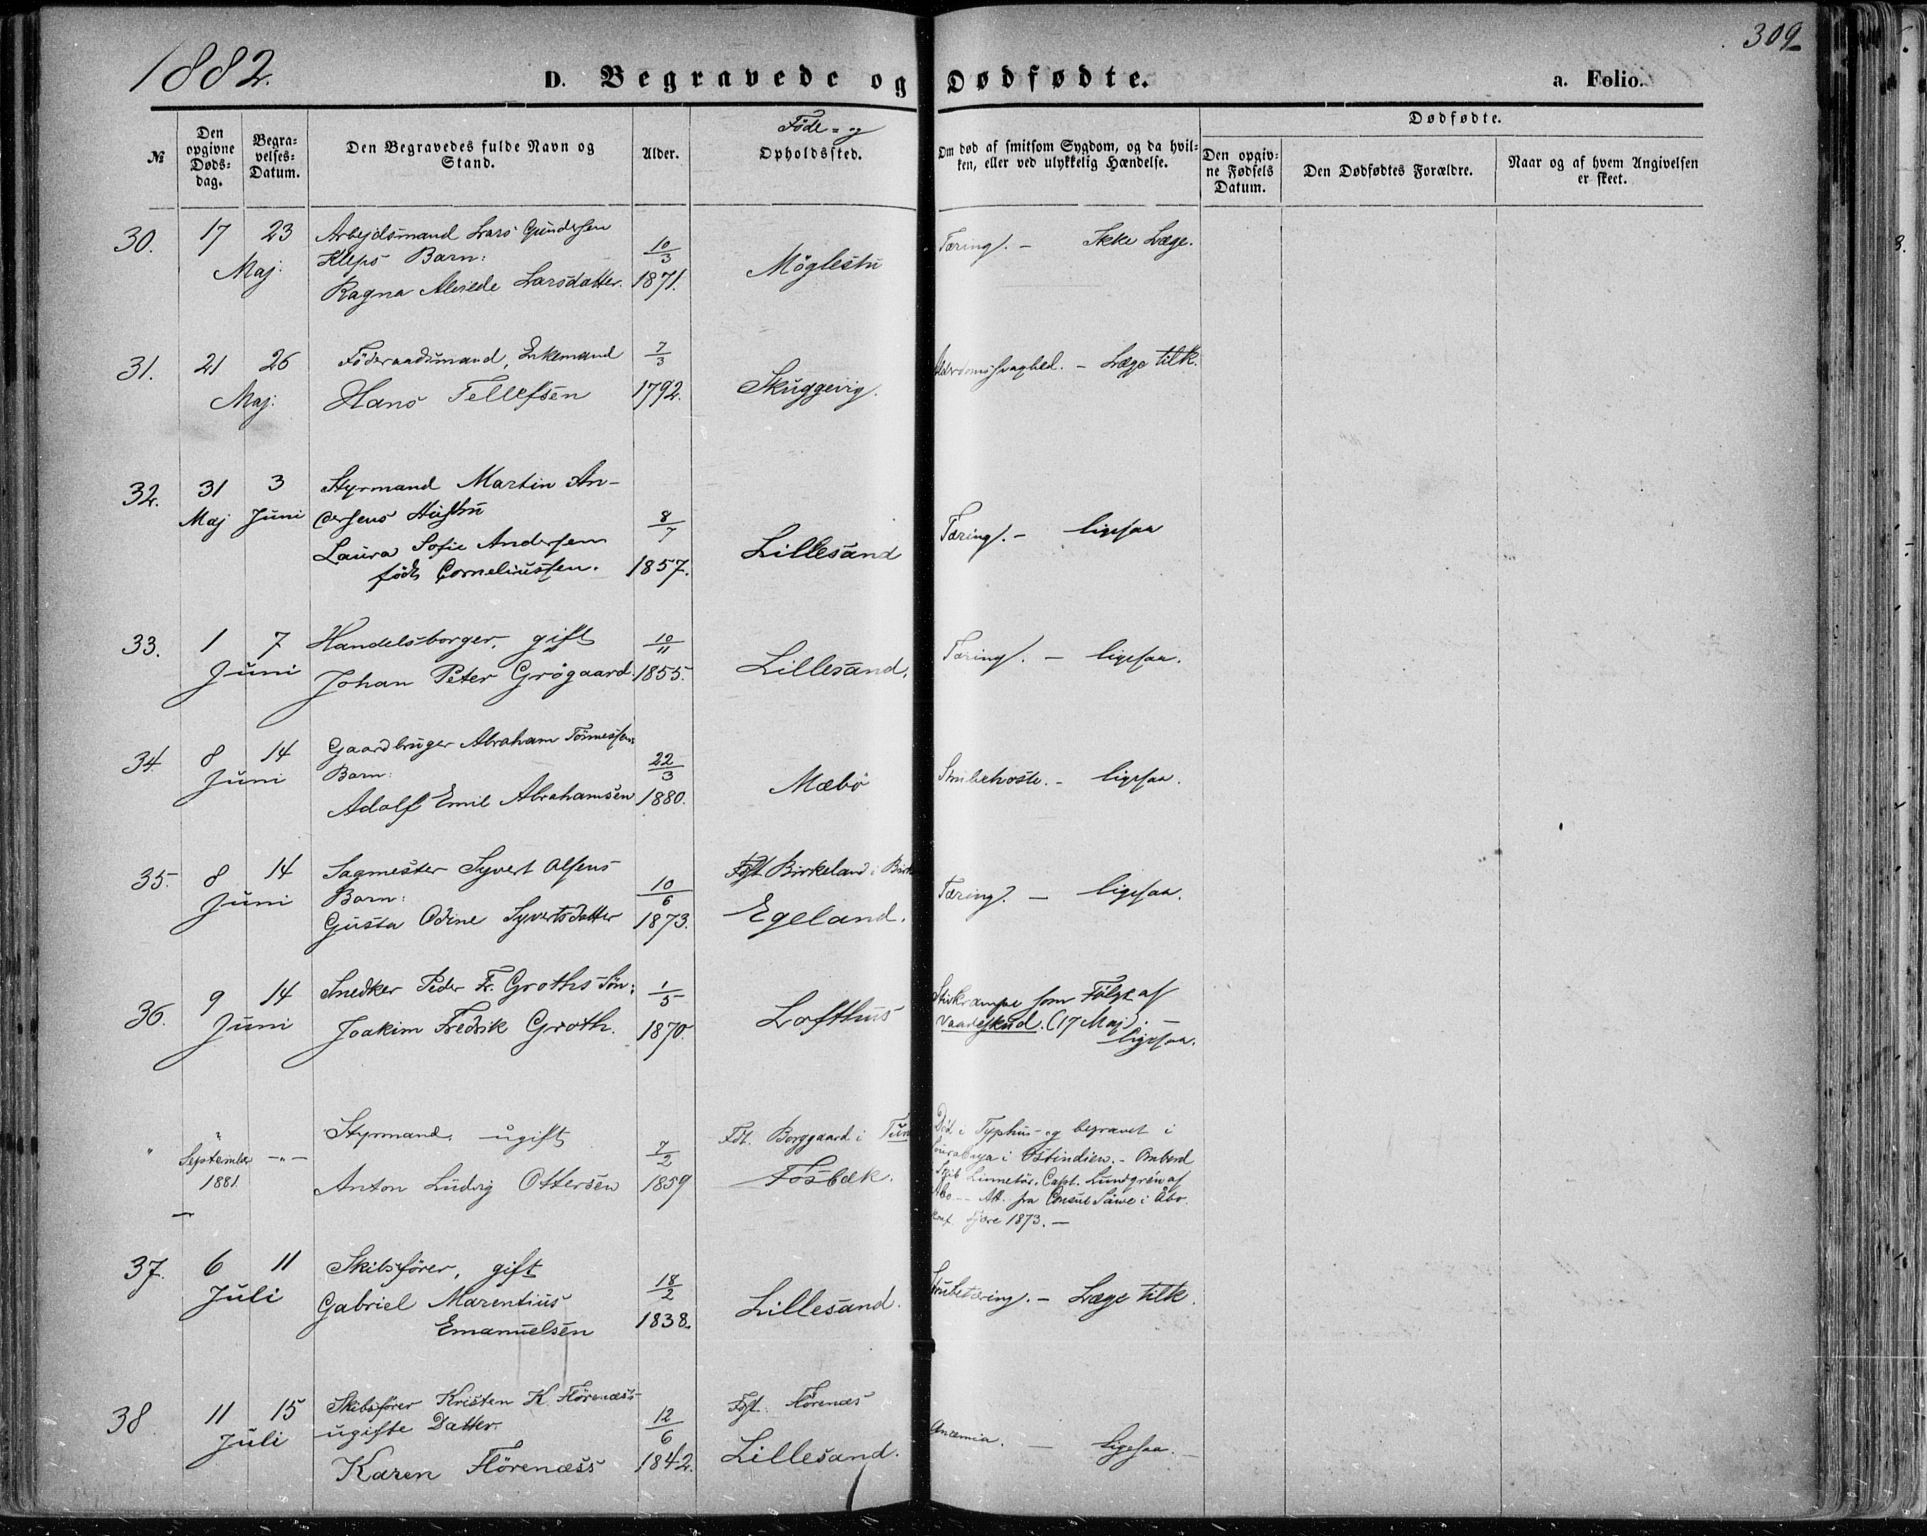 1882.
309
D. Begravede og Dødfødte.
a. Folio.
№
Den opgivne Døds-dag.
Begra-velses-Datum.
Den Begravedes fulde Navn og Stand.
Alder.
Føde- og
Opholdssted.
Om død af smitsom Sygdom, og da hvil-
ken, eller ved ulykkelig Hændelse.
Dødfødte.
Den opgiv-
ne Fødsels
Datum.
Den Dødfødtes Forældre.
Naar og af hvem Angivelsen
er skeet.
30. 17 23 Arbejdsmand Lars Gundersen
Kleps Barn: 10/3 Tæring. - Ikke Læge.
Maj: Ragna Larsdatter. 1871. Møglestu
31. 21 26 Föderaadsmand, Enkemand 7/3
Maj: Hans Tellefsen 1792. Skuggevig. Alderdomssvaghed. - Læge tilk.
32. 31 3 Styrmand Martin An-
Maj Juni dersens Hustru 8/7
Laura Sofie Andersen Lillesand Tæring. - ligesaa
født Corneliussen. 1857.
33. 1 7 Handelsborger, gift 10/11
Juni Johan Peter Grøgaard. 1855. Lillesand. Tæring. - ligesaa.
34. 8 14 Gaardbruger Abraham Tønnessens
Juni Barn: 22/3 Mæbø Strubehoste. - ligesaa.
Adolf Emil Abrahamsen 1880.
35. 8 14 Sagmester Syvert Olsens Født Birkeland i
Juni Barn: 10/6 Tæring. - ligesaa.
Gusta Odine Syvertsdatter 1873. Egeland.
36. 9 14 Snedker Peder Fr. Groths Søn: 1/5 Stivkrampe som Følge af
Juni Joakim Fredrik Groth. 1870. Lofthus Vaadeskud. (17 Maj). -
ligesaa.
" " Styrmand, ugift 7/2 Fdt. Borggaard i
September -"- Død i Typhus - og begravet i
1881. Anton Ludvig Ottersen 1859 Fosbæk. Sourabaya i Ostindien. - Ombord
Skib Linnetør, Capt. Lundgrén af
Åbo. - Att. fra Consul i Åbo.
Konf. Fjære 1873. -
37. 6 11 Skibsfører, gift 18/2
Juli Gabriel Marentius Lillesand. Strubetæring. - Læge tilk.
Emanuelsen 1838.
38 11 15 Skibsfører Kristen K. Flörenæss Født. Flörenæs
Juli ugifte Datter. 12/6 Anæmia. - Ligesaa. -
Karen Flörenæss 1842. Lillesand.